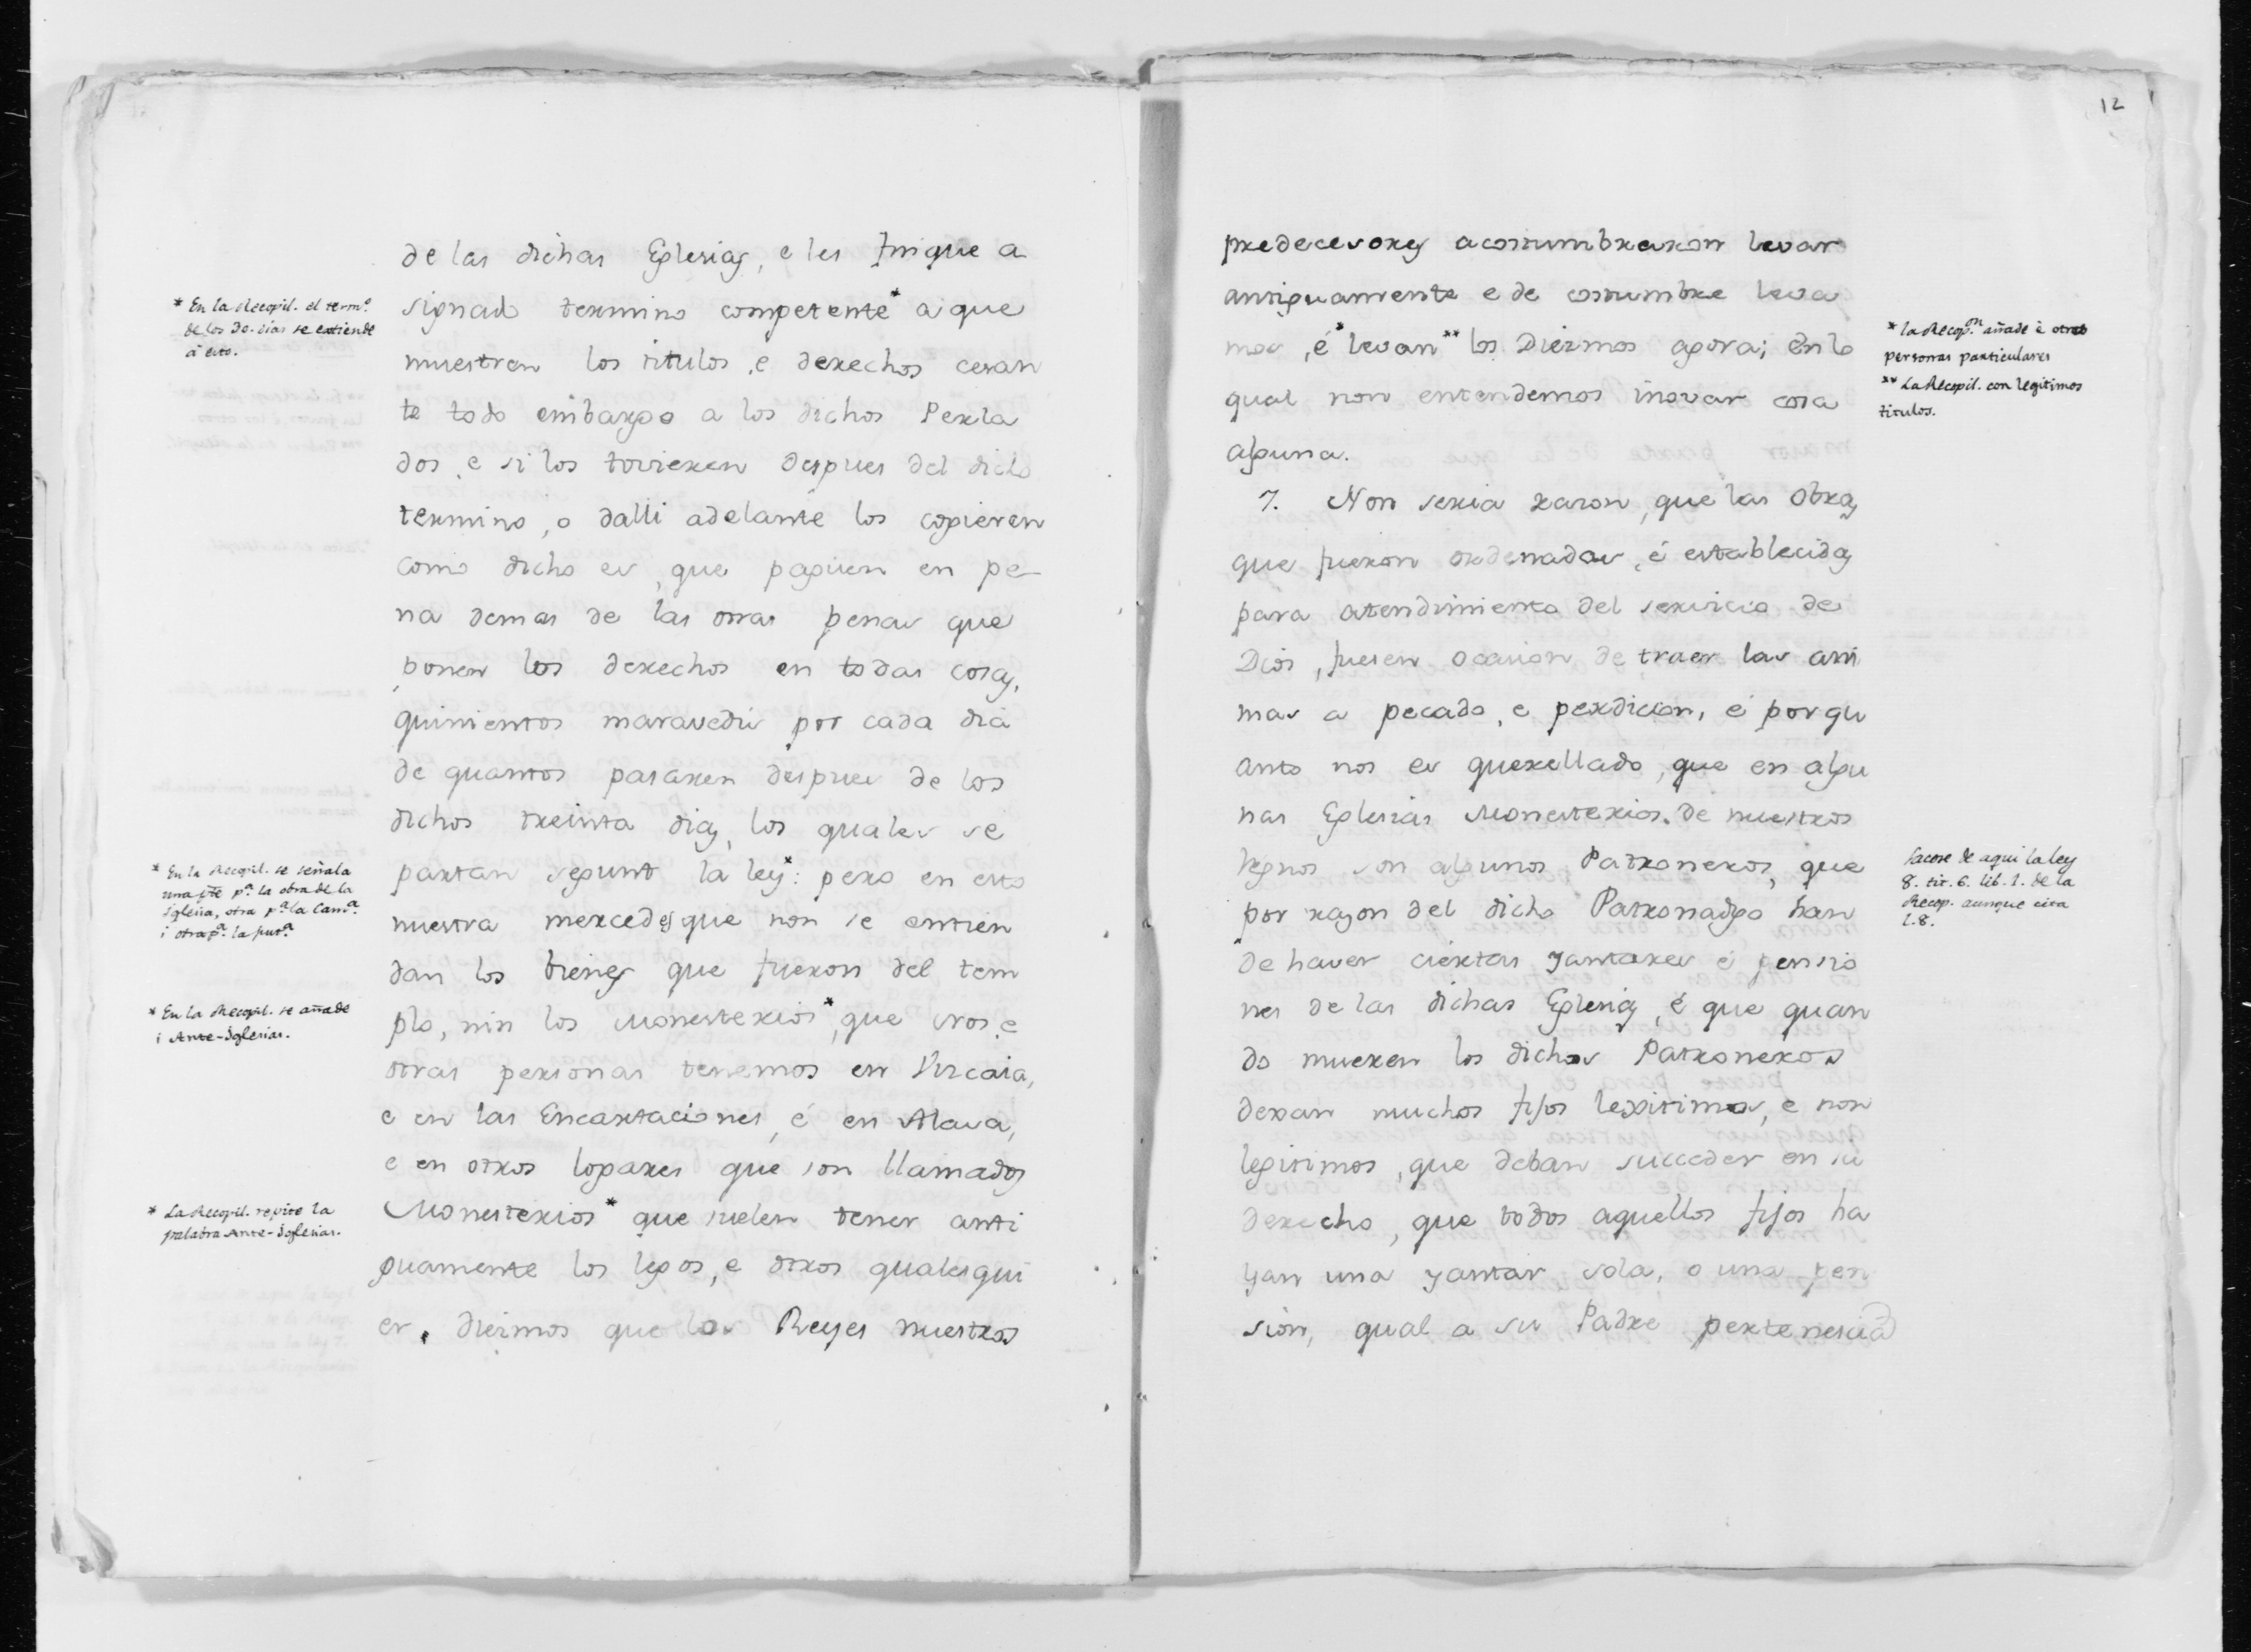 de las dichas Eglesias, e les fuique a
signado termino competente* a que
muestren los titulos, e derechos cesan
te todo embargo a los dichos Perla
dos, e si los tovieren despues del dicho
termino, o dalli adelante los copieren
como dicho es, que paguen en pe
na demas de las otras penas que
ponen los derechos en todas cosas,
quinientos maravedis por cada dia
de quantos pasaren despues de los
dichos treinta dias, los quales se
partan segunt la ley*: pero en esto
nuestra merced es que non se entien
dan los bienes que fueron del tem
plo, nin los Monesterios*, que Nos, e
otras personas tenemos en Vizcaia,
e en las Encartaciones, é en Alava,
e en otros logares que son llamados
Monesterios* que suelen tener anti
guamente los legos, e otros qualesqui
er, diezmos que los Reyes nuestros
* En la Recopil. el term.º
de los 30. dias se extiende
á esto.
* En la Recopil. se señala
una pte p.ª la obra de la
Iglesia, otra p.ª la Cam.ª
i otra p.ª la just.ª
* En la Recopil. se añade
i Ante-Iglesias.
* La Recopil. repite la
palabra Ante-Iglesias.
12
predecesores acostumbraron levar
antiguamente e de costumbre leva
mos, é* levan** los Diezmos agora; en lo
qual non entendemos inovar cosa
alguna.
7. Non seria razon, que las Obras
que fueron ordenadas, é establecidas
para atendimiento del servicio de
Dios, fuesen ocasion de traer las ani
mas a pecado, e perdicion, é porqu
anto nos es querellado, que en algu
nas Eglesias Monesterios de nuestros
Regnos son algunos Patroneros, que
por razon del dicho Patronadgo han
de haver ciertas yantares é pensio
nes de las dichas Eglesias, é que quan
do mueren los dichos Patroneros
dexan muchos fijos legitimos, e non
legitimos, que deban succeder en su
derecho, que todos aquellos fijos ha
yan una yantar sola, o una pen
sion, qual a su Padre pertenescia
* la Recop.on añade è otras
personas particulares
** La Recopil. con legitimos
titulos.
Sacose de aqui la ley
8. tit. 6. lib. 1. de la
Recop. aunque cita
l. 8.